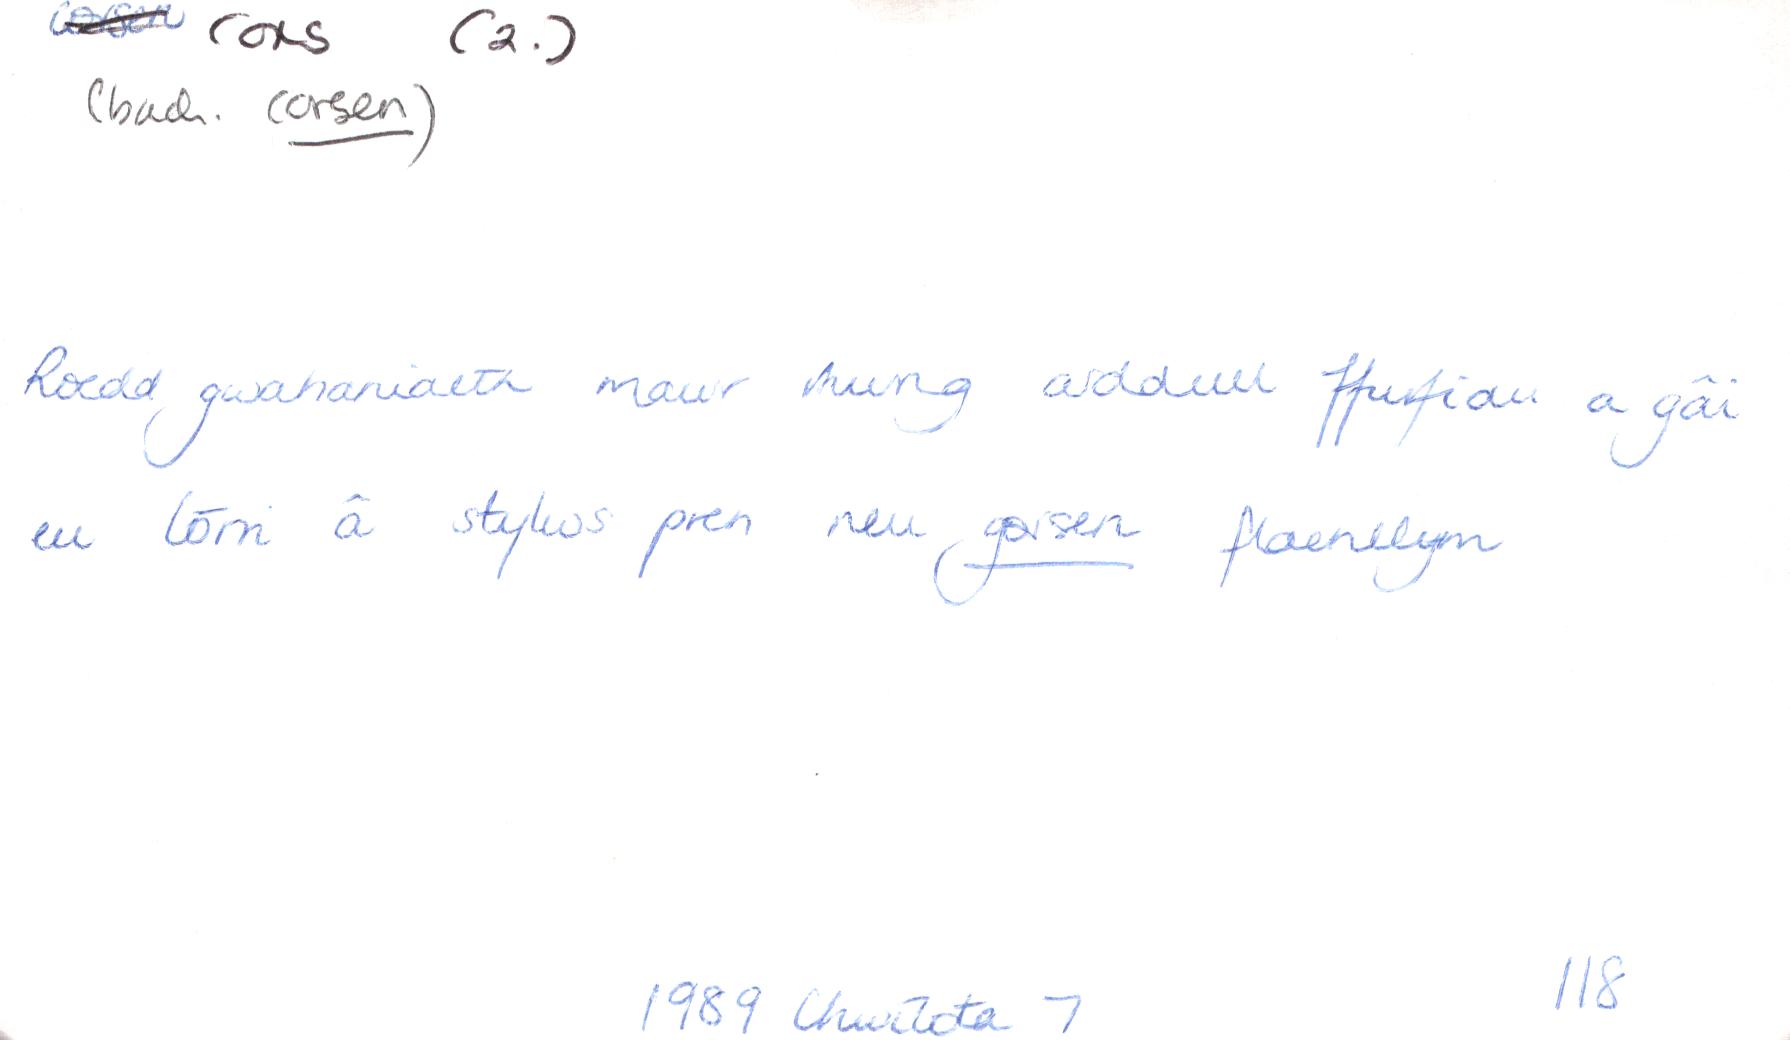 corsen cors (2.)
(bach. corsen)
Roedd gwahaniaeth mawr rhwng arddull ffurfiau a gâi
eu llunio â stylws pren neu gorsen flaenllym
1989 Chwilota 7
118